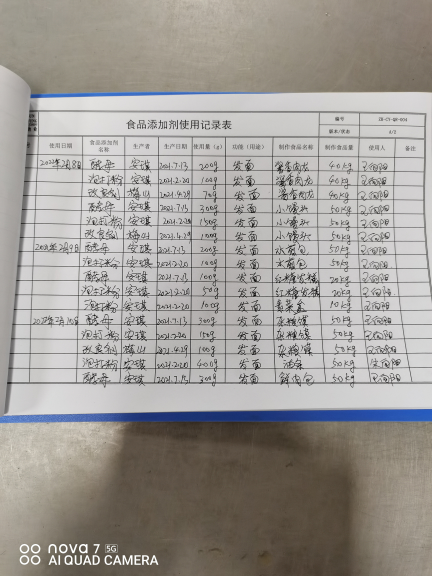 食品添加剂使用记录表
编号 ZH-CX-QR-004
版本/状态 A/2
使用日期 食品添加剂名称 生产者 生产日期 使用量(g) 功能(用途) 制作食品名称 制作食品量 使用人 备注
2022年2月8日 酵母 安琪 2021.7.13 200g 发面 酱香肉龙 40kg
泡打粉 安琪 2021.2.20 100g 发面 酱香肉龙 40kg
改良剂 梅山 2021.4.29 70g 发面 酱香肉龙 40kg
酵母 安琪 2021.7.13 300g 发面 小馒头 50kg
泡打粉 安琪 2021.2.20 150g 发面 小馒头 50kg
改良剂 梅山 2021.4.29 100g 发面 小馒头 50kg
2022年2月9日 酵母 安琪 2021.7.13 200g 发面 水煎包 50kg
泡打粉 安琪 2021.2.20 100g 发面 水煎包 50kg
酵母 安琪 2021.7.13 100g 发面 红糖发糕 20kg
泡打粉 安琪 2021.2.20 50g 发面 红糖发糕 20kg
泡打粉 安琪 2021.2.20 100g 发面 10kg
2022年2月10日 酵母 安琪 2021.7.13 300g 发面 杂粮馍 50kg
泡打粉 安琪 2021.2.20 150g 发面 杂粮馍 50kg
改良剂 梅山 2021.4.29 100g 发面 杂粮馍 50kg
泡打粉 安琪 2021.2.20 400g 发面 油条 50kg
酵母 安琪 2021.7.13 300g 发面 鲜肉包 50kg
nova 7 5G
AI QUAD CAMERA